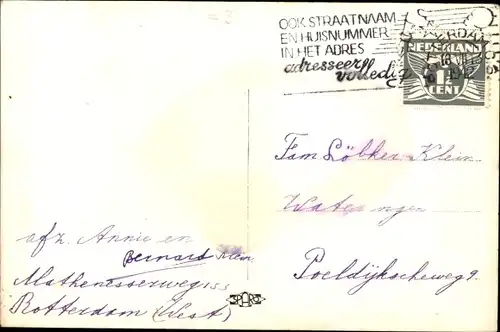 OOK STRAATNAAM
EN HUISNUMMER
IN HET ADRES
adresseer volledig
NEDERLAND
1½
CENT
Fam Löbker-Klein
Wateringen
Poeldijkscheweg 9.
afz. Annie en
Bernard Klein
Mathenesserweg
Rotterdam (West)